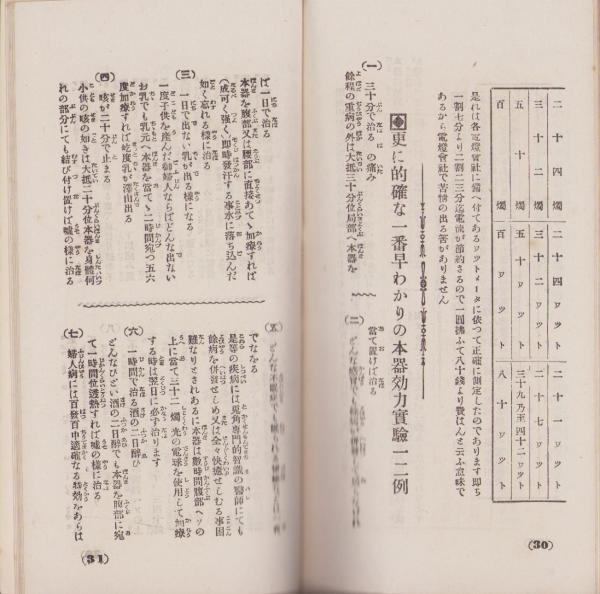 二十四燭 二十四ワット 二十一ワット
三十二燭 三十二ワット 二十七ワット
五十燭 五十ワット 三十九乃至四十二ワット
百燭 百ワット 八十ワット
是れは各電燈會社に備へ付てあるワットメータに依つて正確に測定したのであります即ち
一割七分より二割二三分迄電流が節約さるので一圓拂ふて八十錢より費はんと云ふ意味で
あるから電燈會社で苦情の出る筈がありません
更に的確な一番早わかりの本器効力實驗一二例
(一) 三十分で治る の痛み
餘程の重病の外は大抵三十分位局部へ本器を
當て置けば治る
(二)
(30)
ば一日で治る
本器を腹部又は腰部に直接あてゝ加療すれば
(成可く強く)即時發汗する事水に落ち込んだ
如く忘れる樣に治る
(三) 一日で出ない乳が出る樣になる
一度子供を産んだ御婦人ならばどんな出ない
お乳でも乳元へ本器を當てゝ二時間宛つ五六
度加療すれば屹度乳が澤山出る
(四) 咳が二十分で止まる
小供の咳の如きは大抵二十分位本器を身體何
れの部分にても結び付け置けば嘘の樣に治る
(五)
でなほる
是等の疾病には兎角專門的智識の醫師にても
餘病を併發せしめ又は全々快癒せしむる事困
難なりとされあるに本器は數時間腹部ヘソの
上に當て三十二燭光の電球を使用して加療
する時は翌日に必す治ります
(六) 一時間で治る酒の二日醉ひ
どんなひどい酒の二日醉でも本器を腹部に宛
て一時間位透熱すれば嘘の樣に治る
(七) 婦人病には百發百中適確なる特効をあらは
(31)